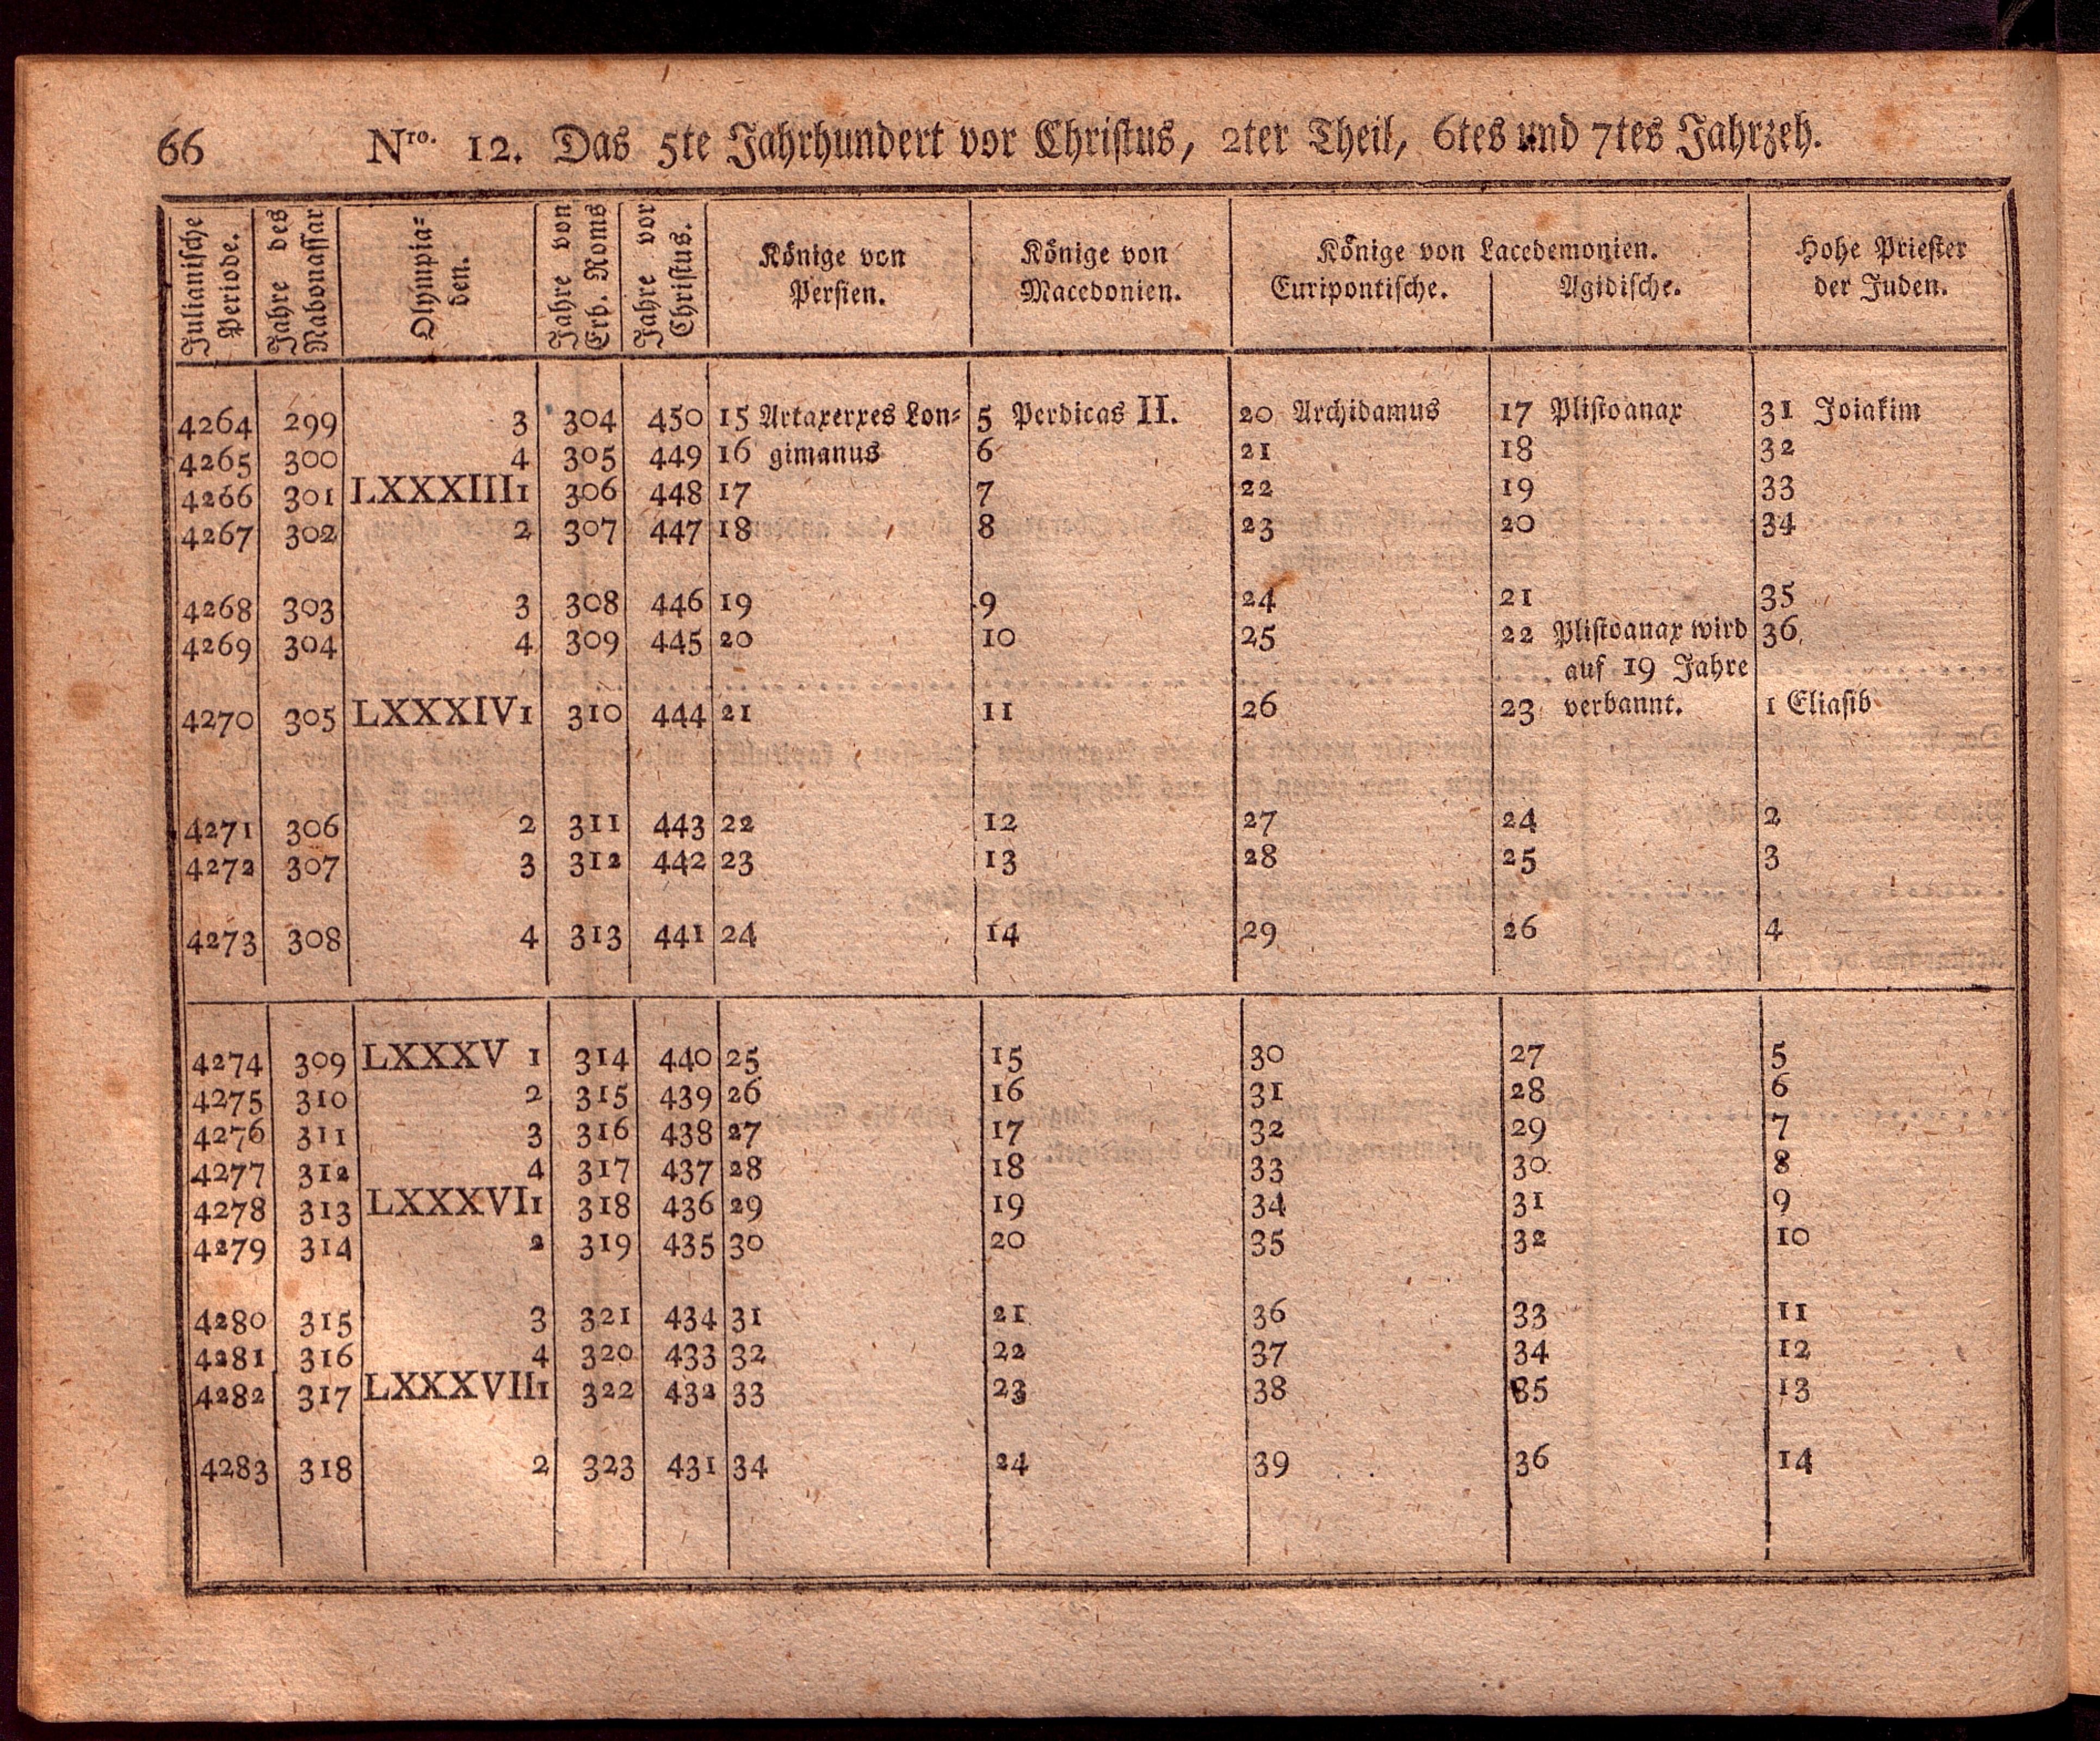 66 Nro. 12. Das 5te Jahrhundert vor Christus, 2ter Theil, 6tes und 7tes Jahrzeh.
Julianische Periode. Jahre des Nabonassar Olympia= den. Jahre von Erb. Roms Jahre vor Christus. Könige von Persien. Könige von Macedonien. Könige von Lacedemonien. Euripontische. Agidische. Hohe Priester der Juden.
4264 299 3 304 450 15 Artaxerxes Lon= 5 Perdicas II. 20 Archidamus 17 Plistoanax 31 Joiakim
4265 300 4 305 449 16 gimanus 6 21 18 32
4266 301 LXXXIII 1 306 448 17 7 22 19 33
4267 302 2 307 447 18 8 23 20 34
4268 303 3 308 446 19 9 24 21 35
4269 304 4 309 445 20 10 25 22 Plistoanax wird 36
auf 19 Jahre
4270 305 LXXXIV 1 310 444 21 11 26 23 verbannt. 1 Eliasib
4271 306 2 311 443 22 12 27 24 2
4272 307 3 312 442 23 13 28 25 3
4273 308 4 313 441 24 14 29 26 4
4274 309 LXXXV 1 314 440 25 15 30 27 5
4275 310 2 315 439 26 16 31 28 6
4276 311 3 316 438 27 17 32 29 7
4277 312 4 317 437 28 18 33 30 8
4278 313 LXXXVI 1 318 436 29 19 34 31 9
4279 314 2 319 435 30 20 35 32 10
4280 315 3 321 434 31 21 36 33 11
4281 316 4 320 433 32 22 37 34 12
4282 317 LXXXVII 1 322 432 33 23 38 35 13
4283 318 2 323 431 34 24 39 36 14